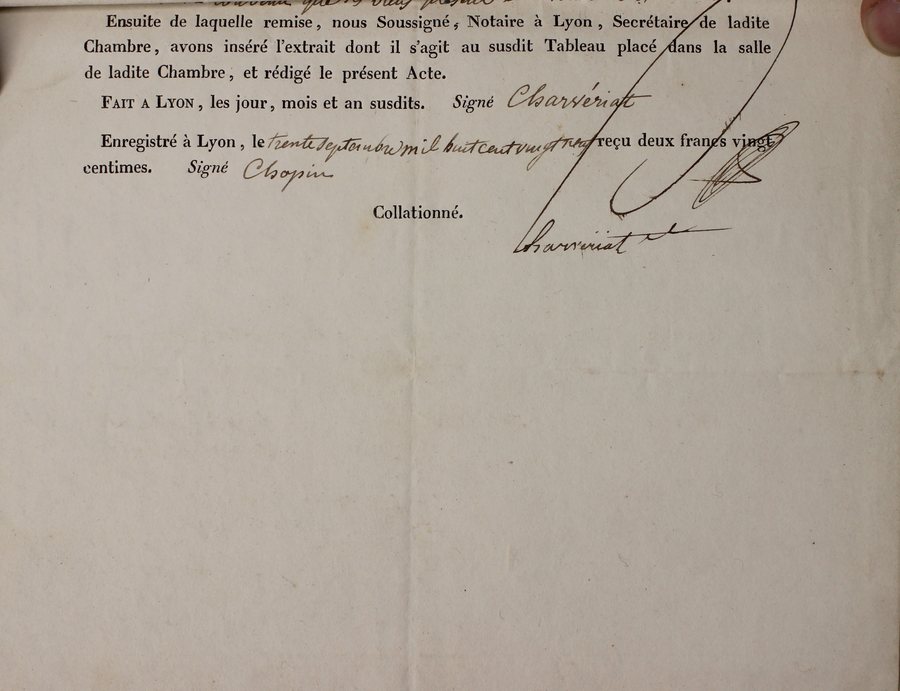 que
Ensuite de laquelle remise, nous Soussigné, Notaire à Lyon, Secrétaire de ladite
Chambre, avons inséré l'extrait dont il s'agit au susdit Tableau placé dans la salle
de ladite Chambre, et rédigé le présent Acte.
FAIT A LYON, les jour, mois et an susdits. Signé Charvériat
Enregistré à Lyon, le trente septembre mil huit cent vingt neuf reçu deux francs vingt
centimes. Signé Chopin
Collationné.
Charvériat